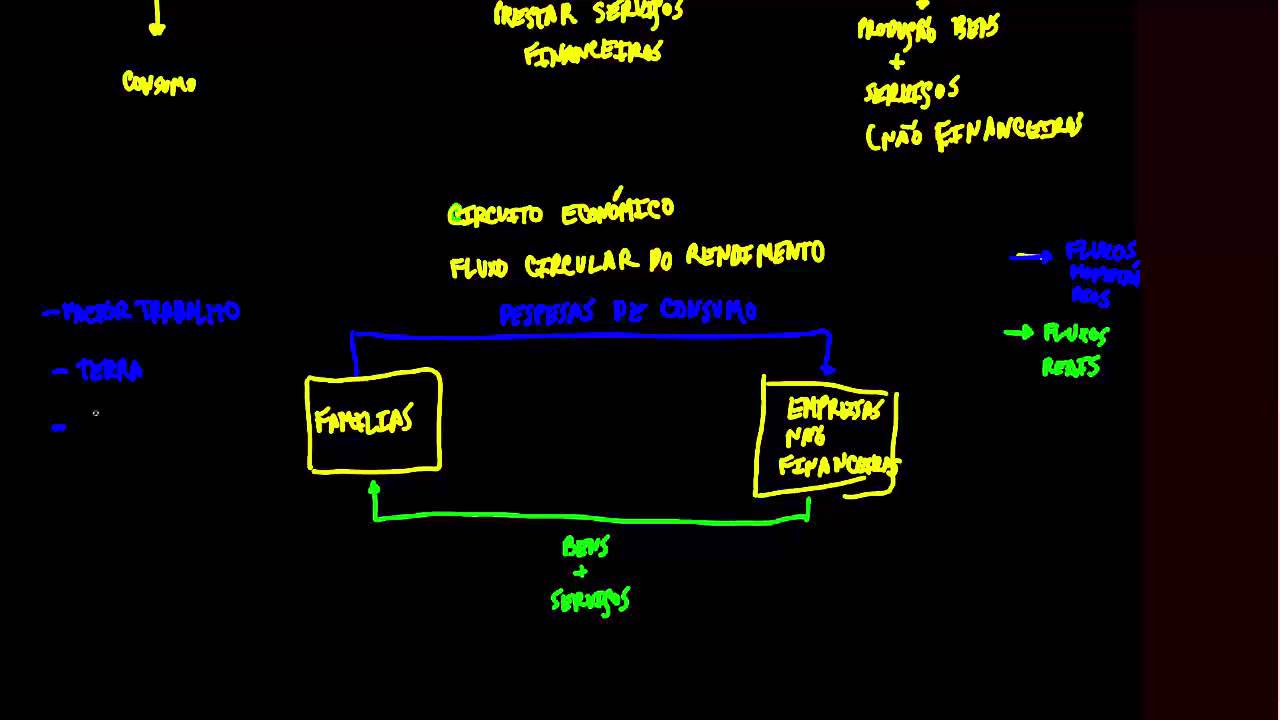 PRESTAR SERVIÇOS
FINANCEIROS
PRODUÇÃO BENS
+
SERVIÇOS
(NÃO FINANCEIROS
CONSUMO
CIRCUITO ECONÓMICO
FLUXO CIRCULAR DO RENDIMENTO
DESPESAS DE CONSUMO
- FACTOR TRABALHO
- TERRA
-
FAMILIAS
EMPRESAS
NÃO
FINANCEIRAS
BENS
+
SERVIÇOS
FLUXOS
MONETÁRI
REIS
FLUXOS
REAIS